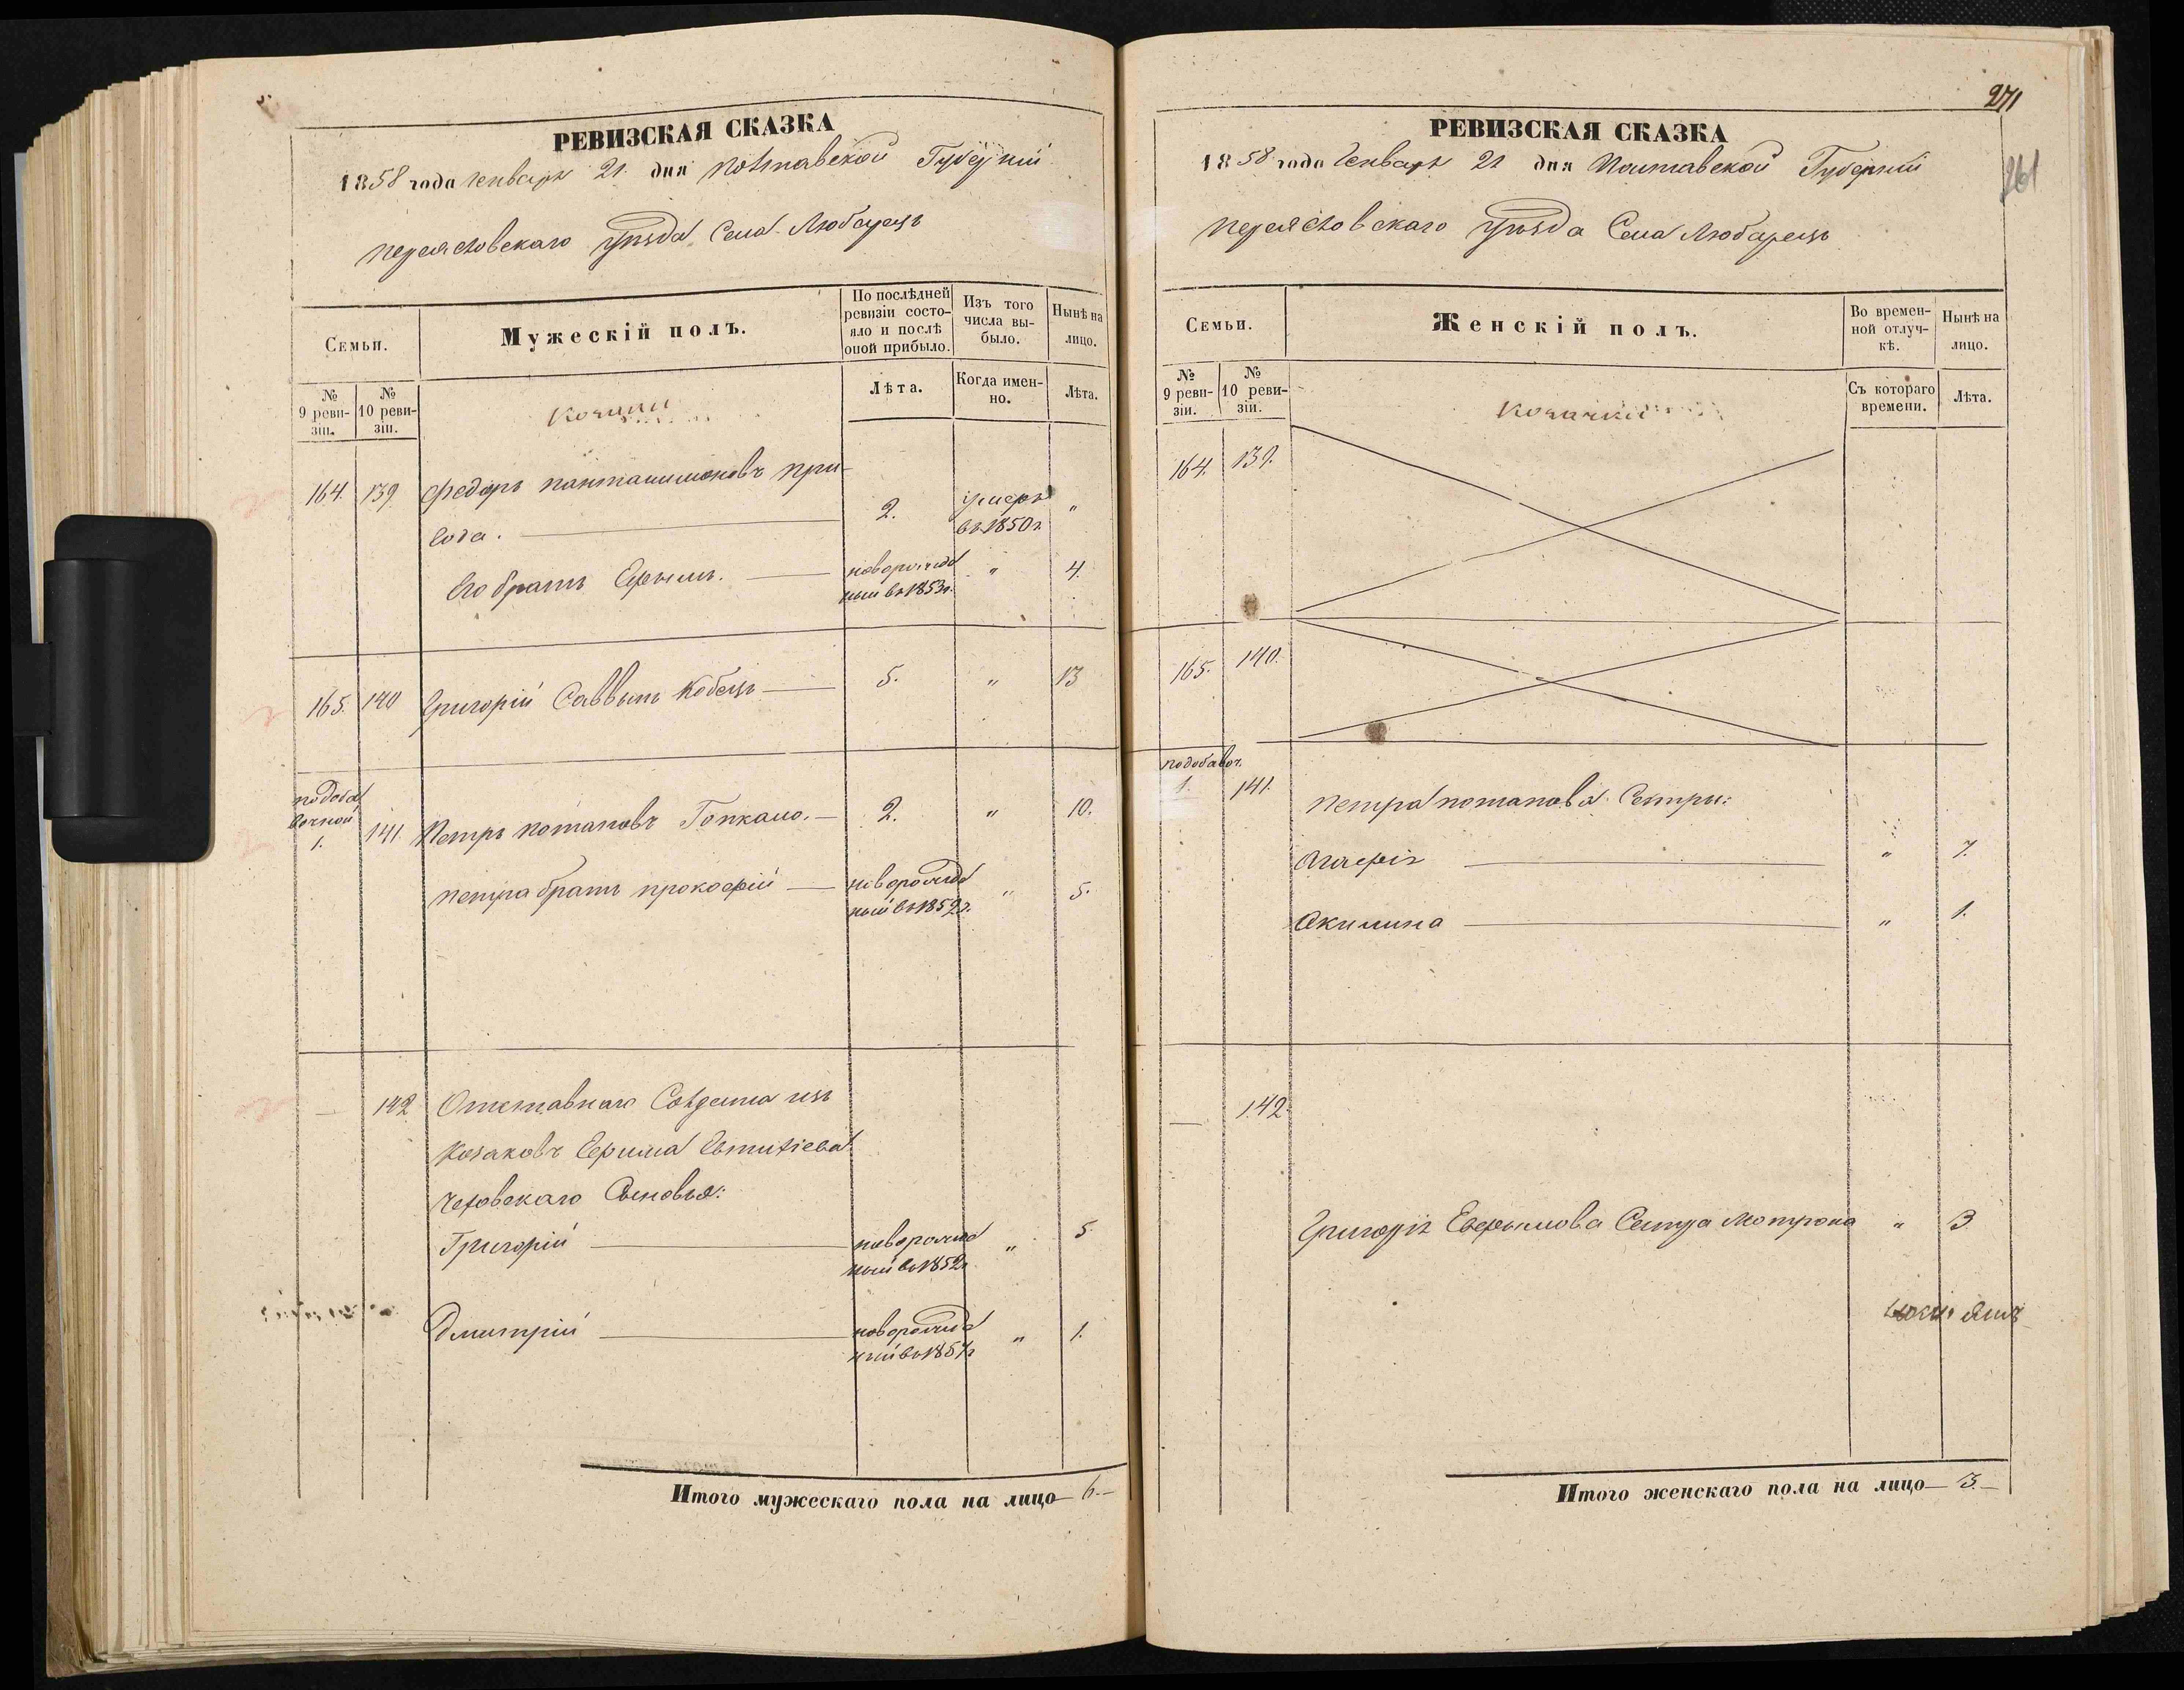 РЕВИЗСКАЯ СКАЗКА
1858 года Генваря 21 дня Полтавской Губерніи
Переясловскаго уѣзда Села Любарецъ
Семьи.
Мужескій полъ.
По послѣдней ревизіи состояло и послѣ оной прибыло.
Изъ того числа выбыло.
Нынѣ на лицо.
№ 9 ревизіи.
№ 10 ревизіи.
Козаки
Лѣта.
Когда именно.
Лѣта.
164. 139 Федоръ Пантелимоновъ При-
вода. — 2. умеръ въ 1850 г. "
Его братъ — новорожденный въ 1853 г. " 4.
165. 140 Григорій Саввинъ Кобецъ — 5. " 13
по добавочной
1. 141. Петръ Потаповъ — 2. " 10.
Петра братъ Прокофій — новорожденный въ 1852 г. " 5.
— 142 Отставнаго Солдата изъ
Козаковъ Ефима Евтихіева
Сыновья:
Григорій — новорожденный въ 1852 г. " 5
Дмитрій — новорожденный въ 1857 г. " 1.
Итого мужескаго пола на лицо — 6. —
271
261
РЕВИЗСКАЯ СКАЗКА
1858 года Генваря 21 дня Полтавской Губерніи
Переясловскаго уѣзда Села Любарецъ
Семьи.
Женскій полъ.
Во временной отлучкѣ.
Нынѣ на лицо.
№ 9 ревизіи.
№ 10 ревизіи.
Козачки
Съ котораго времени.
Лѣта.
164. 139.
165. 140.
по добавоч.
1. 141. Петра Потапова Сестры:
— " 7.
Акилина — " 1.
— 142.
Григорія Сестра Мотрона " 3
Итого женскаго пола на лицо — 3. —